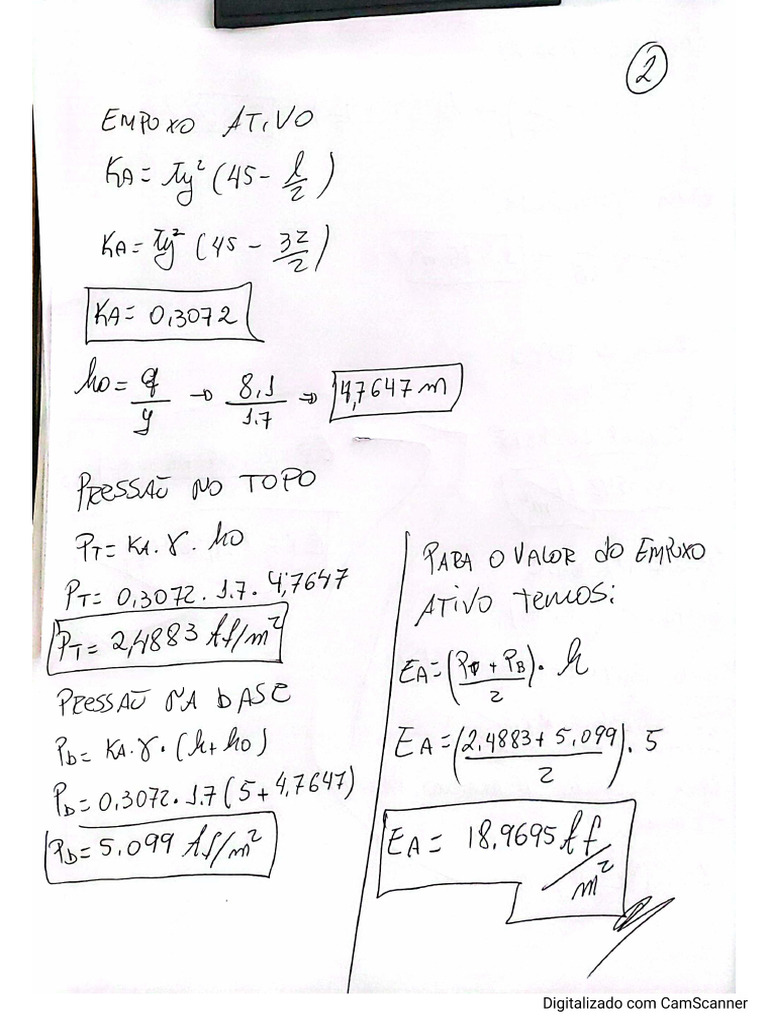 2
EMPUXO ATIVO
KA = Tg² (45 - ϕ/2)
KA = Tg² (45 - 32/2)
KA = 0,3072
ho = q/γ → 8.1/1.7 ⇒ 4,7647 m
PRESSÃO NO TOPO
PT = KA . γ . ho
PT = 0,3072 . 1.7 . 4,7647
PT = 2,4883 tf/m²
PRESSÃO NA BASE
Pb = KA . γ . (h + ho)
Pb = 0,3072 . 1.7 (5 + 4,7647)
Pb = 5.099 tf/m²
PARA O VALOR do EMPUXO
ATIVO temos:
EA = (PT + PB / 2) . h
EA = (2,4883 + 5,099 / 2) . 5
EA = 18,9695 tf/m²
Digitalizado com CamScanner